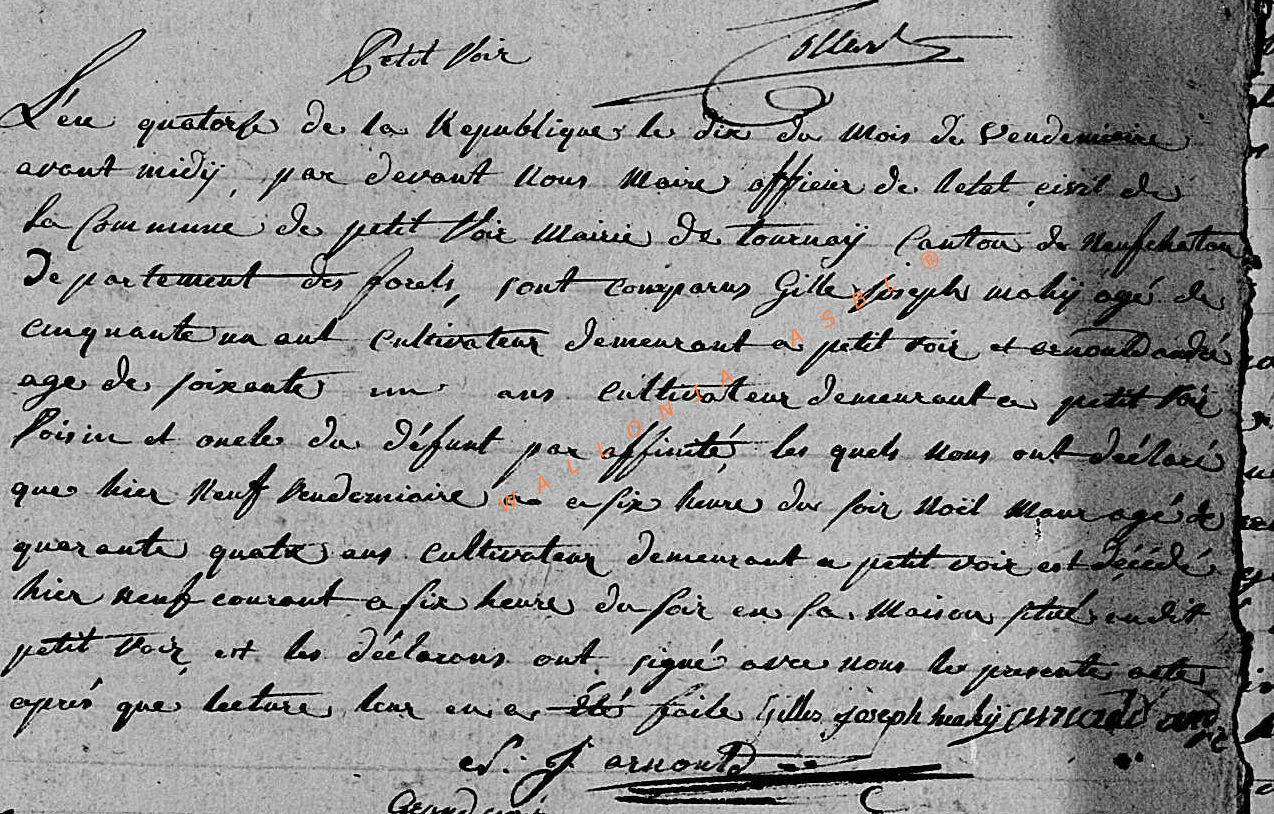 Petit Voir
L'en quatorse de la Republique le dix du mois de Vendemiaire
avant midÿ, par devant nous maire officier de letat civil de
la Commune de petit Voir Mairie de tournaÿ Canton de Neufchatau
Departement des forets, sont comparus Gille Joseph mahÿ agé de
cinquante un ant cultivateur demeurant a petit voir et arnould andré
age de soixante un ans cultivateur demeurant a petit Voir
Voisin et oncle du défunt par affinité les quels nous ont déclaré
que hier neuf Vendemiaire a six heure du soir Noël Maur agé de
quarante quatre ans cultivateur demeurant a petit voir est décédé
hier neuf courant a six heure du soir en sa Maison situé audit
petit Voir, et les déclarans ont signé avec nous le presente acte
aprés que lecture leur en a été faite Gilles joseph mahÿ
arnould
WALLONIA ASBL ®